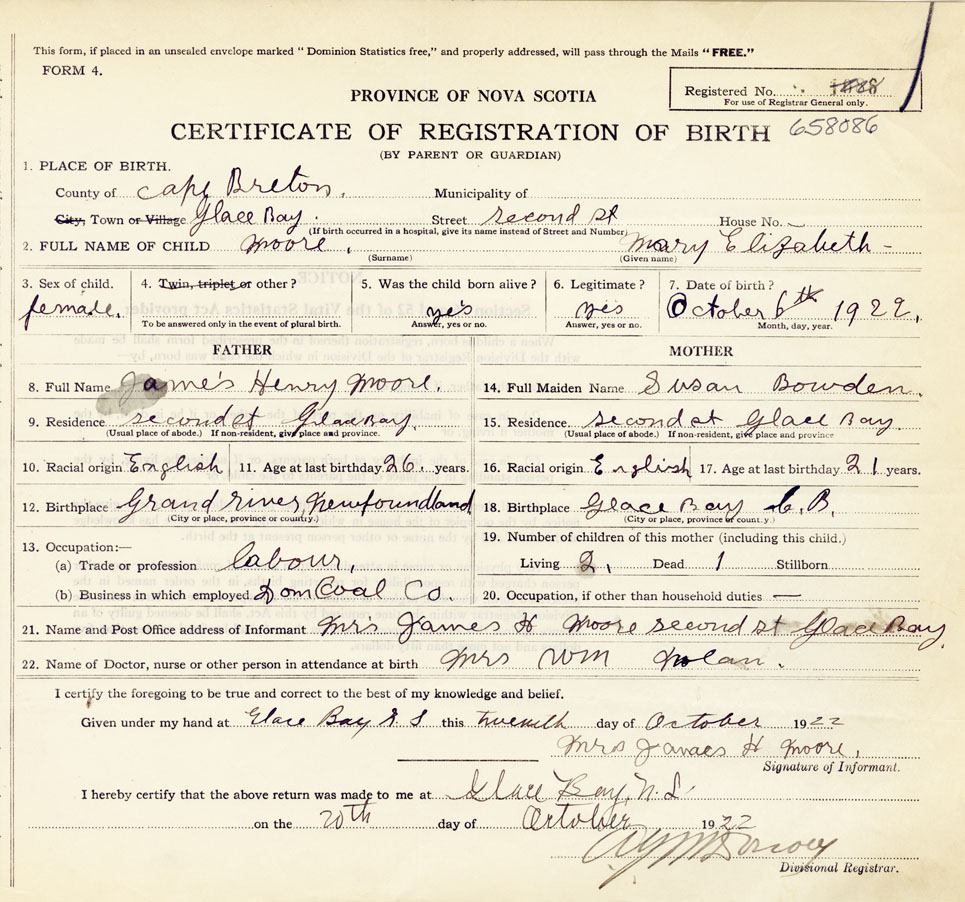 This form, if placed in an unsealed envelope marked "Dominion Statistics free," and properly addressed, will pass through the Mails "FREE."
FORM 4.
Registered No.
For use of Registrar General only.
PROVINCE OF NOVA SCOTIA
CERTIFICATE OF REGISTRATION OF BIRTH 658086
(BY PARENT OR GUARDIAN)
1. PLACE OF BIRTH.
County of Cape Breton. Municipality of
City, Town or Village Glace Bay. Street second st House No.
(If birth occurred in a hospital, give its name instead of Street and Number)
2. FULL NAME OF CHILD Moore, Mary Elizabeth -
(Surname) (Given name)
3. Sex of child. 4. Twin, triplet or other? 5. Was the child born alive? 6. Legitimate? 7. Date of birth?
female. yes yes October 6th 1922.
To be answered only in the event of plural birth. Answer, yes or no. Answer, yes or no. Month, day, year.
FATHER MOTHER
8. Full Name James Henry Moore. 14. Full Maiden Name Susan Bowden.
9. Residence second st Glace Bay. 15. Residence second st Glace Bay
(Usual place of abode.) If non-resident, give place and province. (Usual place of abode.) If non-resident, give place and province
10. Racial origin English 11. Age at last birthday 26. years. 16. Racial origin English 17. Age at last birthday 21 years.
12. Birthplace Grand river, Newfoundland 18. Birthplace Glace Bay C.B.
(City or place, province or country.) (City or place, province or county.)
13. Occupation:— 19. Number of children of this mother (including this child.)
(a) Trade or profession labour. Living 2. Dead 1 Stillborn
(b) Business in which employed Dom Coal Co. 20. Occupation, if other than household duties —
21. Name and Post Office address of Informant Mrs James H Moore second st Glace Bay.
22. Name of Doctor, nurse or other person in attendance at birth Mrs WM Nolan.
I certify the foregoing to be true and correct to the best of my knowledge and belief.
Given under my hand at Glace Bay N.S this day of October 1922
Mrs James H Moore.
Signature of Informant.
I hereby certify that the above return was made to me at Glace Bay, N.S.
on the 20th day of October 1922
Divisional Registrar.